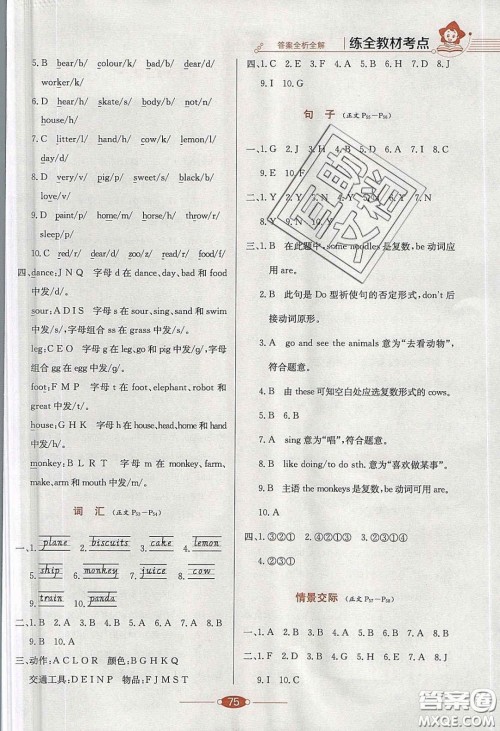 答案全析全解 练全教材考点
5. B bear/b/ colour/k/ bad/d/ dear/d/
worker/k/
6. B house/h/ heart/h/ skate/s/
box/b/
7. C litter/l/ hand/h/ lemon/l/
day/d/
8. D very/v/ pig/p/ sweet/s/
hear/h/
9. D paint/p/ home/m/ horse/h/
sleep/p/
10. C red/r/ doctor/d/ read/r/ food/f/
四、dance:J N Q 字母 d 在 dance, day, bad 和 food
中发/d/。
sour:A D I S 字母 s 在 sour, sing, sand 和 swim
中发/s/,字母组合 ss 在 grass 中发/s/。
leg:C E O 字母 g 在 leg、go 和 pig 中发/g/,字
母组合 gg 在 egg 中发/g/。
foot:F M P 字母 t 在 foot, elephant, robot 和
great 中发/t/。
house:G H K 字母 h 在 house, head, home 和
hand 中发/h/。
monkey:B L R T 字母 m 在 monkey, farm,
make, arm 和 mall 中发/m/。
词 汇 (正文 P33—P34)
一、1. plane 2. biscuits 3. cake 4. lemon
5. ship 6. monkey 7. juice 8. cow
9. train 10. panda
二、1. B 2. B 3. A 4. A 5. B 6. B 7. A 8. A
9. B 10. A
三、动作:ACLOR 颜色:BGHKQ
交通工具:DEINP 物品:FJMST
四、1. C 2. E 3. F 4. H 5. A 6. B 7. D 8. J
9. I 10. G
句 子 (正文 P35—P36)
一、1. G 2. J 3. H 4. C 5. B 6. D 7. I 8. A
9. E 10. F
二、1. Y 2. N 3. N 4. Y 5. N 6. Y 7. N
8. Y 9. Y 10. N
三、1. B 在此题中,some noodles 是复数,be 动词应
用 are。
2. B 此句是 Do 型祈使句的否定形式,don't 后
接动词原形。
3. A go and see the animals 意为“去看动物”,
符合题意。
4. B 由 these 可知空白处应选复数形式的 cows。
5. B 6. B
7. A sing 意为“唱”,符合题意。
8. B like doing/to do sth. 意为“喜欢做某事”。
9. B 主语 the monkeys 是复数,be 动词可用 are。
10. A
四、1. ③②① 2. ④②③① 3. ②③①
4. ②③①
情景交际 (正文 P37—P38)
一、1. A 2. F 3. B 4. C 5. G 6. E 7. D 8. J
9. I 10. H
二、1. B 2. B 3. A 4. A 5. B 6. A 7. B 8. A
9. B 10. B
75
作业精灵
答案圈
MXQE.COM